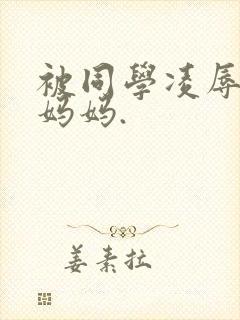 被同學凌辱
妈妈.
姜素拉